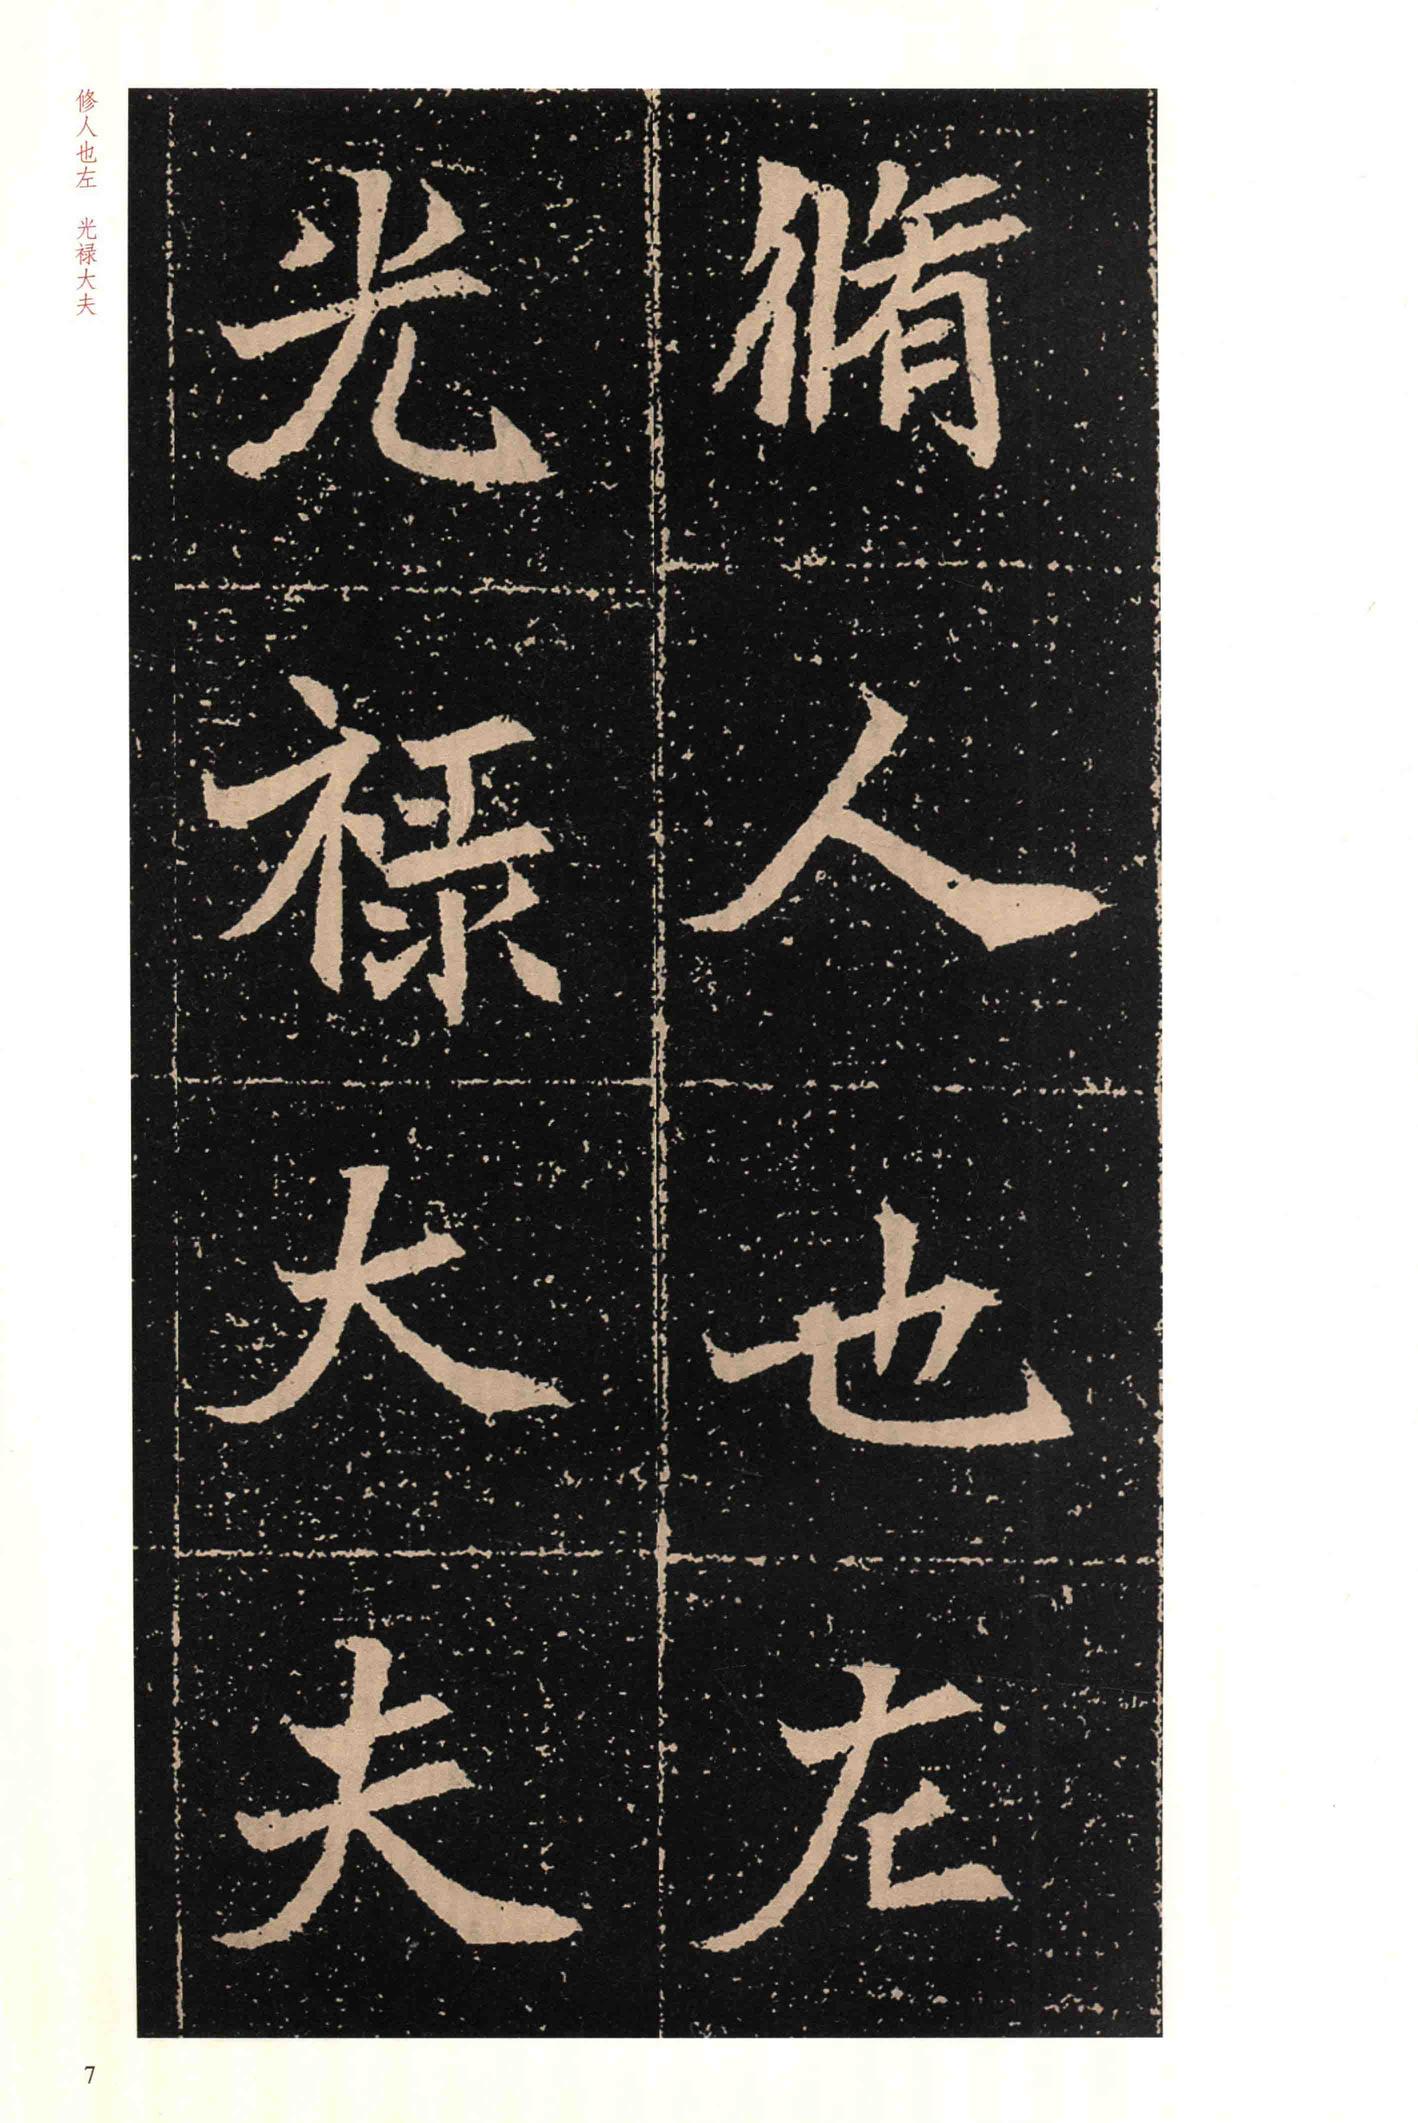 脩人也左
光禄大夫
修人也左 光禄大夫
7